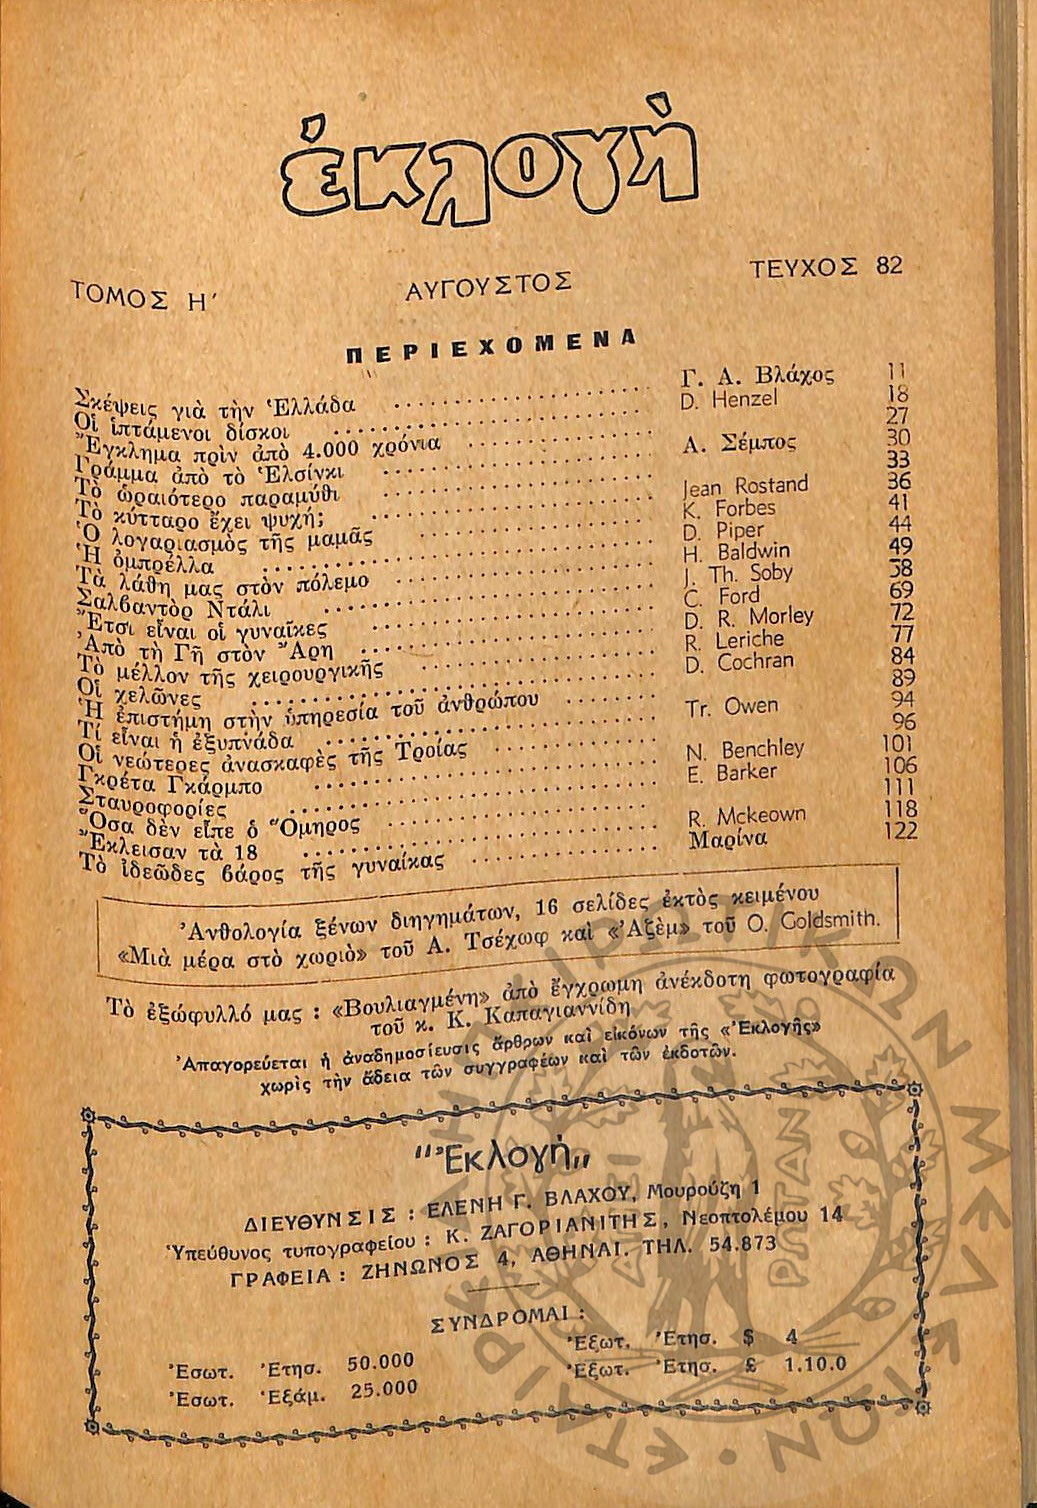 ἐκλογή
ΤΟΜΟΣ Η΄ ΑΥΓΟΥΣΤΟΣ ΤΕΥΧΟΣ 82
ΠΕΡΙΕΧΟΜΕΝΑ
Σκέψεις γιὰ τὴν Ἑλλάδα .......... Γ. Α. Βλάχος 11
Οἱ ἱπτάμενοι δίσκοι .......... D. Henzel 18
Ἔγκλημα πρὶν ἀπὸ 4.000 χρόνια .......... 27
Γράμμα ἀπὸ τὸ Ἑλσίνκι .......... Α. Σέμπος 30
Τὸ ὡραιότερο παραμύθι .......... 33
Τὸ κύτταρο ἔχει ψυχή; .......... Jean Rostand 36
Ὁ λογαριασμὸς τῆς μαμᾶς .......... K. Forbes 41
Ἡ ὀμπρέλλα .......... D. Piper 44
Τὰ λάθη μας στὸν πόλεμο .......... H. Baldwin 49
Σαλβαντὸρ Ντάλι .......... J. Th. Soby 58
Ἔτσι εἶναι οἱ γυναῖκες .......... C. Ford 69
Ἀπὸ τὴ Γῆ στὸν Ἄρη .......... D. R. Morley 72
Τὸ μέλλον τῆς χειρουργικῆς .......... R. Leriche 77
Οἱ χελῶνες .......... D. Cochran 84
Ἡ ἐπιστήμη στὴν ὑπηρεσία τοῦ ἀνθρώπου .......... 89
Τί εἶναι ἡ ἐξυπνάδα .......... Tr. Owen 94
Οἱ νεώτερες ἀνασκαφὲς τῆς Τροίας .......... 96
Γκρέτα Γκάρμπο .......... N. Benchley 101
Σταυροφορίες .......... E. Barker 106
Ὅσα δὲν εἶπε ὁ Ὅμηρος .......... 111
Ἔκλεισαν τὰ 18 .......... R. Mckeown 118
Τὸ ἰδεῶδες βάρος τῆς γυναίκας .......... Μαρίνα 122
Ἀνθολογία ξένων διηγημάτων, 16 σελίδες ἐκτὸς κειμένου
«Μιὰ μέρα στὸ χωριὸ» τοῦ Α. Τσέχωφ καὶ «Ἀζὲμ» τοῦ O. Goldsmith.
Τὸ ἐξώφυλλό μας : «Βουλιαγμένη» ἀπὸ ἔγχρωμη ἀνέκδοτη φωτογραφία
τοῦ κ. Κ. Καπαγιαννίδη
Ἀπαγορεύεται ἡ ἀναδημοσίευσις ἄρθρων καὶ εἰκόνων τῆς «Ἐκλογῆς»
χωρὶς τὴν ἄδεια τῶν συγγραφέων καὶ τῶν ἐκδοτῶν.
"Ἐκλογή„
ΔΙΕΥΘΥΝΣΙΣ : ΕΛΕΝΗ Γ. ΒΛΑΧΟΥ, Μουρούζη 1
Ὑπεύθυνος τυπογραφείου : Κ. ΖΑΓΟΡΙΑΝΙΤΗΣ, Νεοπτολέμου 14
ΓΡΑΦΕΙΑ : ΖΗΝΩΝΟΣ 4, ΑΘΗΝΑΙ. ΤΗΛ. 54.873
ΣΥΝΔΡΟΜΑΙ :
Ἐσωτ. Ἐτησ. 50.000 Ἐξωτ. Ἐτησ. $ 4
Ἐσωτ. Ἑξάμ. 25.000 Ἐξωτ. Ἐτησ. £ 1.10.0